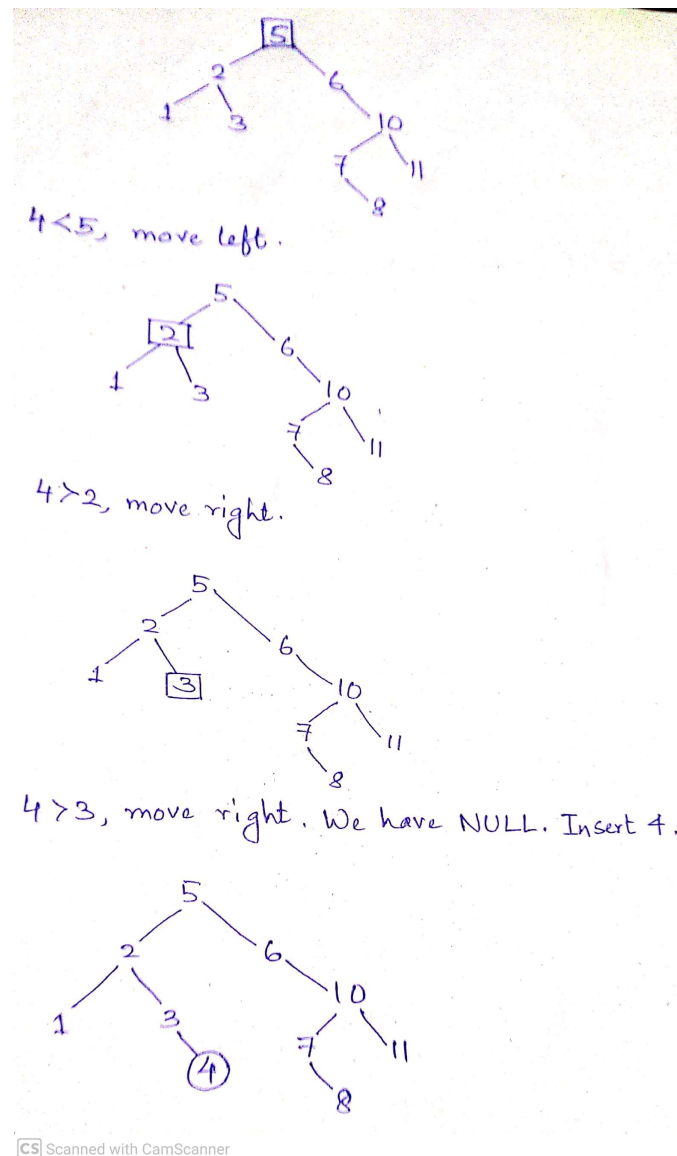 5
2 6
1 3 10
7 11
8
4<5, move left.
5
2 6
1 3 10
7 11
8
4>2, move right.
5
2 6
1 3 10
7 11
8
4>3, move right. We have NULL. Insert 4.
5
2 6
10
1 3 7 11
4
8
CS Scanned with CamScanner